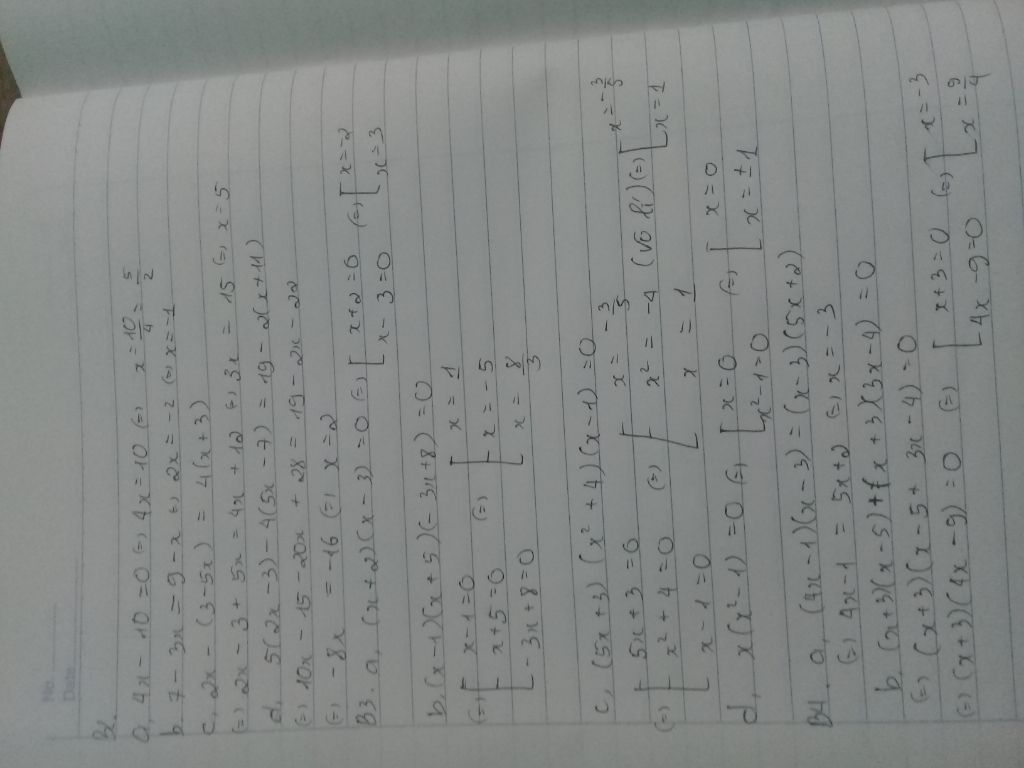 No.
Date
B2.
a, 4x - 10 = 0 (=) 4x = 10 (=) x = 10/4 = 5/2
b. 7 - 3x = 9 - x (=) 2x = -2 (=) x = -1
c. 2x - (3 - 5x) = 4(x + 3)
(=) 2x - 3 + 5x = 4x + 12 (=) 3x = 15 (=) x = 5
d. 5(2x - 3) - 4(5x - 7) = 19 - 2(x + 11)
(=) 10x - 15 - 20x + 28 = 19 - 2x - 22
(=) -8x = -16 (=) x = 2
B3. a, (x + 2)(x - 3) = 0 (=) [ x + 2 = 0 (=) [ x = -2
x - 3 = 0 x = 3
b. (x - 1)(x + 5)(-3x + 8) = 0
(=) [ x - 1 = 0 (=) [ x = 1
x + 5 = 0 x = -5
-3x + 8 = 0 x = 8/3
c, (5x + 3)(x² + 4)(x - 1) = 0
(=) [ 5x + 3 = 0 (=) [ x = -3/5
x² + 4 = 0 x² = -4 (vô lí) (=) [ x = -3/5
x - 1 = 0 x = 1 x = 1
d, x(x² - 1) = 0 (=) [ x = 0 (=) [ x = 0
x² - 1 = 0 x = ±1
B4. a, (4x - 1)(x - 3) = (x - 3)(5x + 2)
(=) 4x - 1 = 5x + 2 (=) x = -3
b. (x + 3)(x - 5) + (x + 3)(3x - 4) = 0
(=) (x + 3)(x - 5 + 3x - 4) = 0
(=) (x + 3)(4x - 9) = 0 (=) [ x + 3 = 0 (=) [ x = -3
4x - 9 = 0 x = 9/4